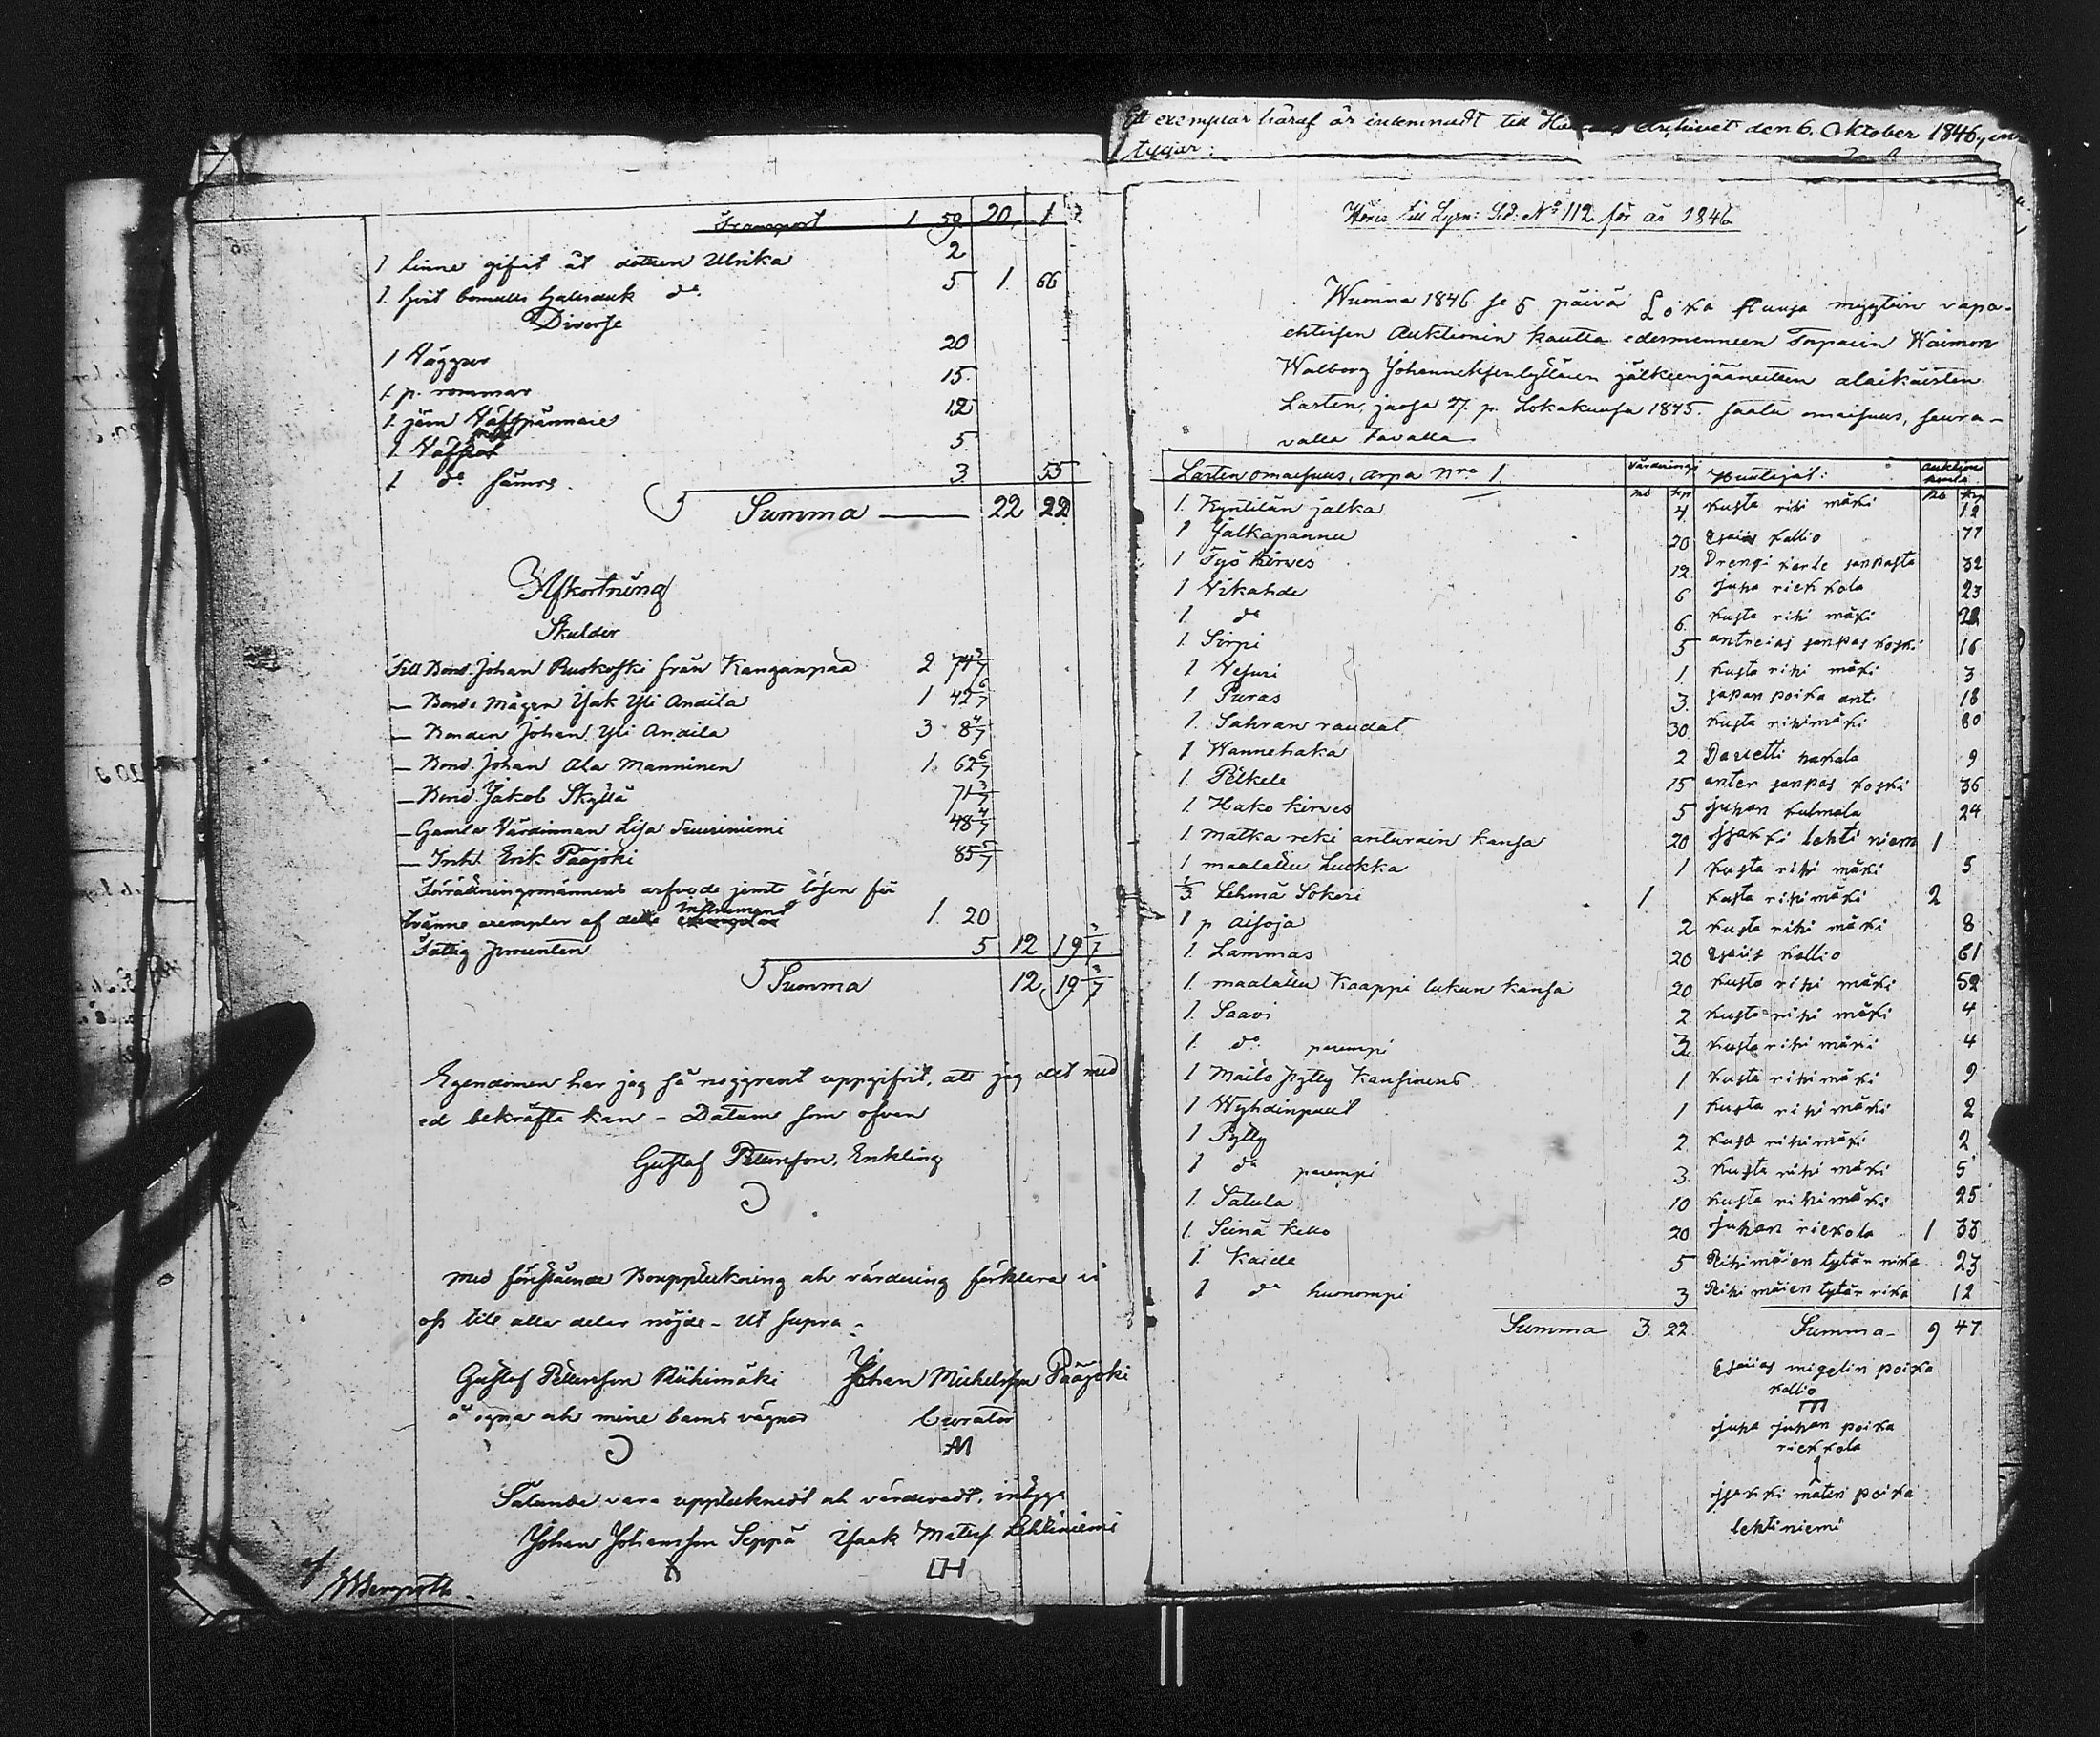 Transport 1 59 20 1
1 linne gifvit åt dottren Ulrika 2
1. hvit bomulls halsduk do. 5 1. 66
Diverse
1 Väggur 20
1. p. rommar 15.
1. järn 12
1. 5.
1 do 3. 55
Summa 22 22
Afkortning
Skulder
Till Bond. Johan Ruokoski från Kanganpää 2 74 3/7
— Bonde Mågen Isak Yli Andila 1 42 6/7
— Bonden Johan Yli Andila 3. 8 4/7
— Bond. Johan Ala Manninen 1. 62 6/7
— Bond. Jakob Skyttä 71 3/7
— Gamla Värdinnan Lisa Suuriniemi 48 4/7
— Inh. Erik Pääjoki 85 5/7
Förrättningsmännens arfvode jemte lösen för
tvänne exemplar af detta instrument 1. 20
Fattig procenten 5 12 19 3/7
Summa 12. 19 3/7
Egendomen har jag så noggrant uppgifvit, att jag det med
ed bekräfta kan – Datum som ofvan
Gustaf Petersson, Enkling
Med förestående Boupptekning och värdering förklara vi
oss till alla delar nöjde – Ut supra –
Gustaf Petersson Riihimäki Johan Michelsson Pääjoki
å egna och mine barns vägnar Curator
Sålunda vara upptecknadt och värderadt, intyga
Johan Johansson Seppä Isaak Matss. Lehtiniemi
af
Ett exemplar häraf är inlemnadt till Archivet den 6. Oktober 1846,
tygar:
Hörer till Lysn: Prot: No 112 för år 1846
Wuonna 1846 se 5 päivä Loka kuusa myytiin vapa-
ehtoisen Auktionin kautta edesmenneen Torparin Waimon
Walborg Johanneksentyttären jälkeenjääneitten alaikäisten
Lasten, jaosa 27. p. Lokakuusa 1845. saatu omaisuus, seura-
valla tavalla
Lasten omaisuus, arpa Nro 1. Värderings Huutajat: Auktions
Rb kop Rb kop
1. Kyntilän jalka 4. kusta rihi mäki 12
1 Jalkapannu 20 Esaias kallio 77
1 Työ kirves 12 Drengi karle sanpasta 32
1 Vikahde 6 juha riekkola 23
1. do 6. kusta rihi mäki 22
1. Sirpi 5 antreias sanpas koski 16
1 Vesuri 1. kusta rihi mäki 3
1. Puras 3. japan poika anti 18
1. Sahran raudat 30 kusta rihimäki 80
1 Wannehaka 2 Davetti hakala 9
1. Pölkele 15 anter sanpas koski 36
1. Hako kirves 5 juhan kulmala 24
1. Matka reki anturain kansa 20 jsakki lehti niem 1
1 maalattu Luokka 1 kusta rihi mäki 5
1/3 Lehmä Sokeri 1 kusta rihimäki 2
1 p aisoja 2 kusta rihi mäki 8
1. Lammas 20 Esaias kallio 61
1. maalattu Kaappi lukun kansa 20 kusta rihi mäki 52
1. Saavi 2 kusta rihi mäki 4
1. do parempi 3 kusta rihi mäki 4
1 Maito pytty kansinens 1 kusta rihimäki 9
1 1 kusta rihimäki 2
1 Pytty 2 kusta rihimäki 2
1 do parempi 3. kusta rihi mäki 5
1. Satula 10 kusta rihimäki 25
1. Seinä kello 20 juhan riekola 1 33
1. Kaide 5 Rihimäien tytär rika 23
1 do huonompi 3 Rihi mäien tytär rika 12
Summa 3. 22 Summa – 9 47
Esaias migelin poika
kallio
juha juhan poika
riekkola
jsakki matin poika
lehtiniemi